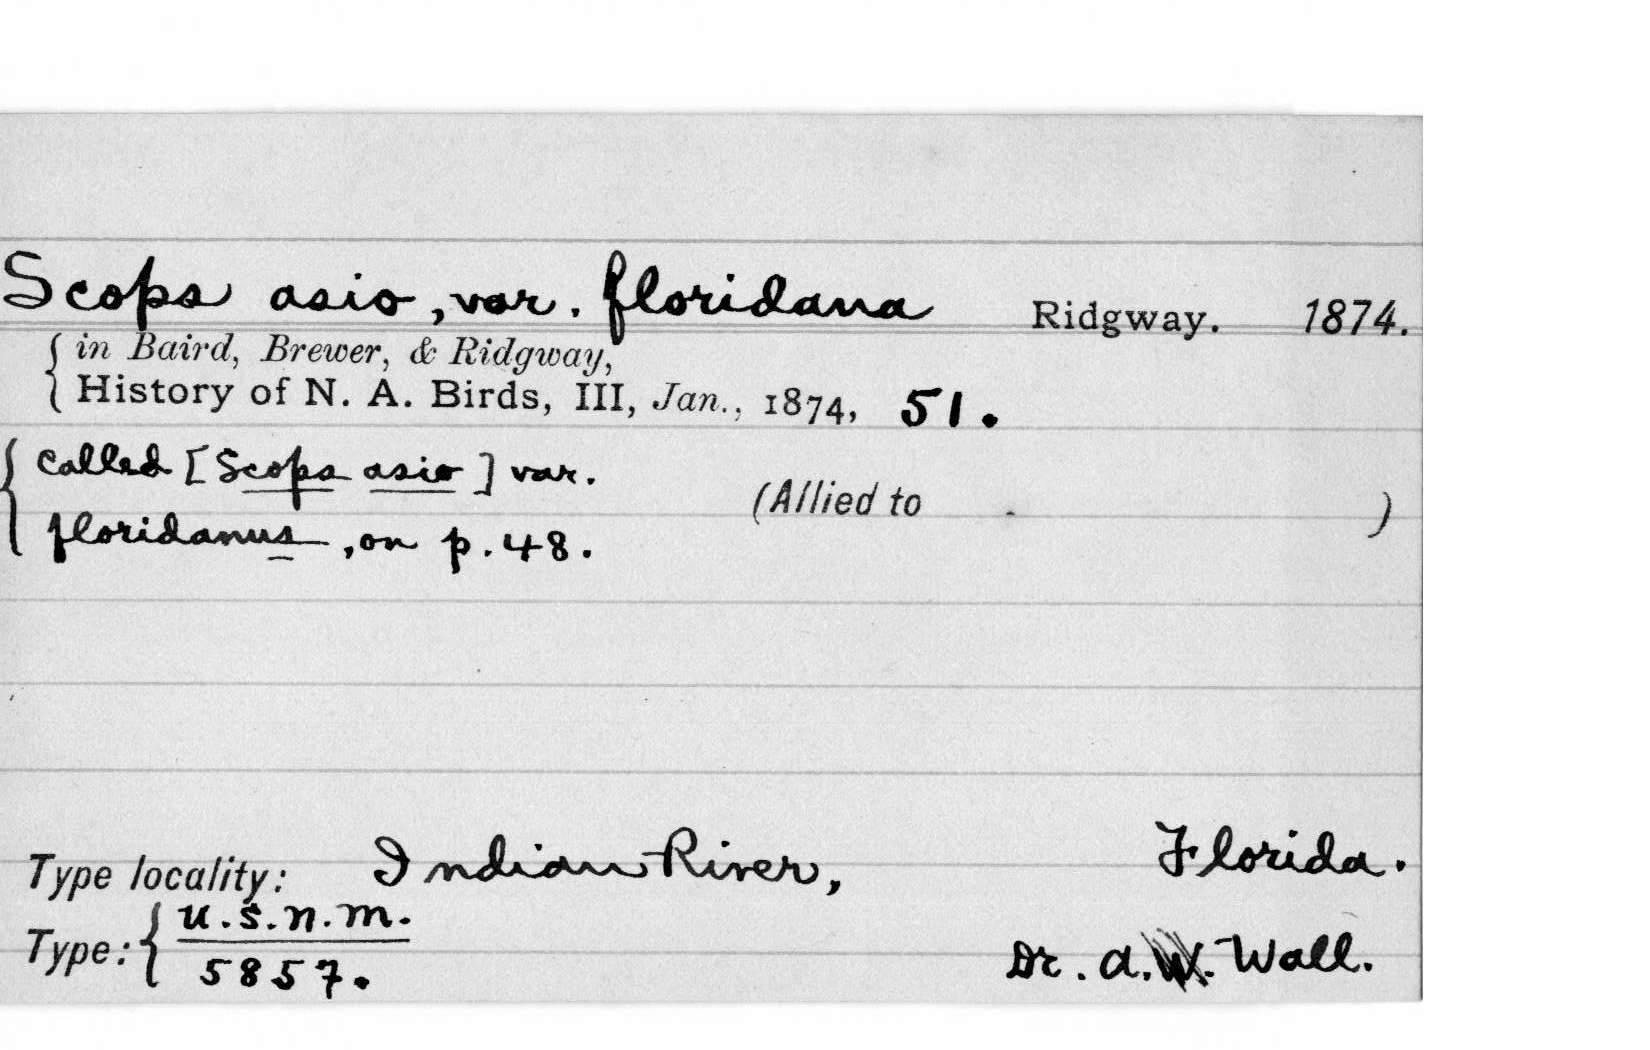 Scops asio, var. floridana Ridgway. 1874.
{ in Baird, Brewer, & Ridgway,
History of N. A. Birds, III, Jan., 1874, 51.
{ called [Scops asio] var.
(Allied to )
floridanus, on p. 48.
Type locality: Indian River, Florida.
Type: { U.S.N.M.
5857. Dr. A. Wall.